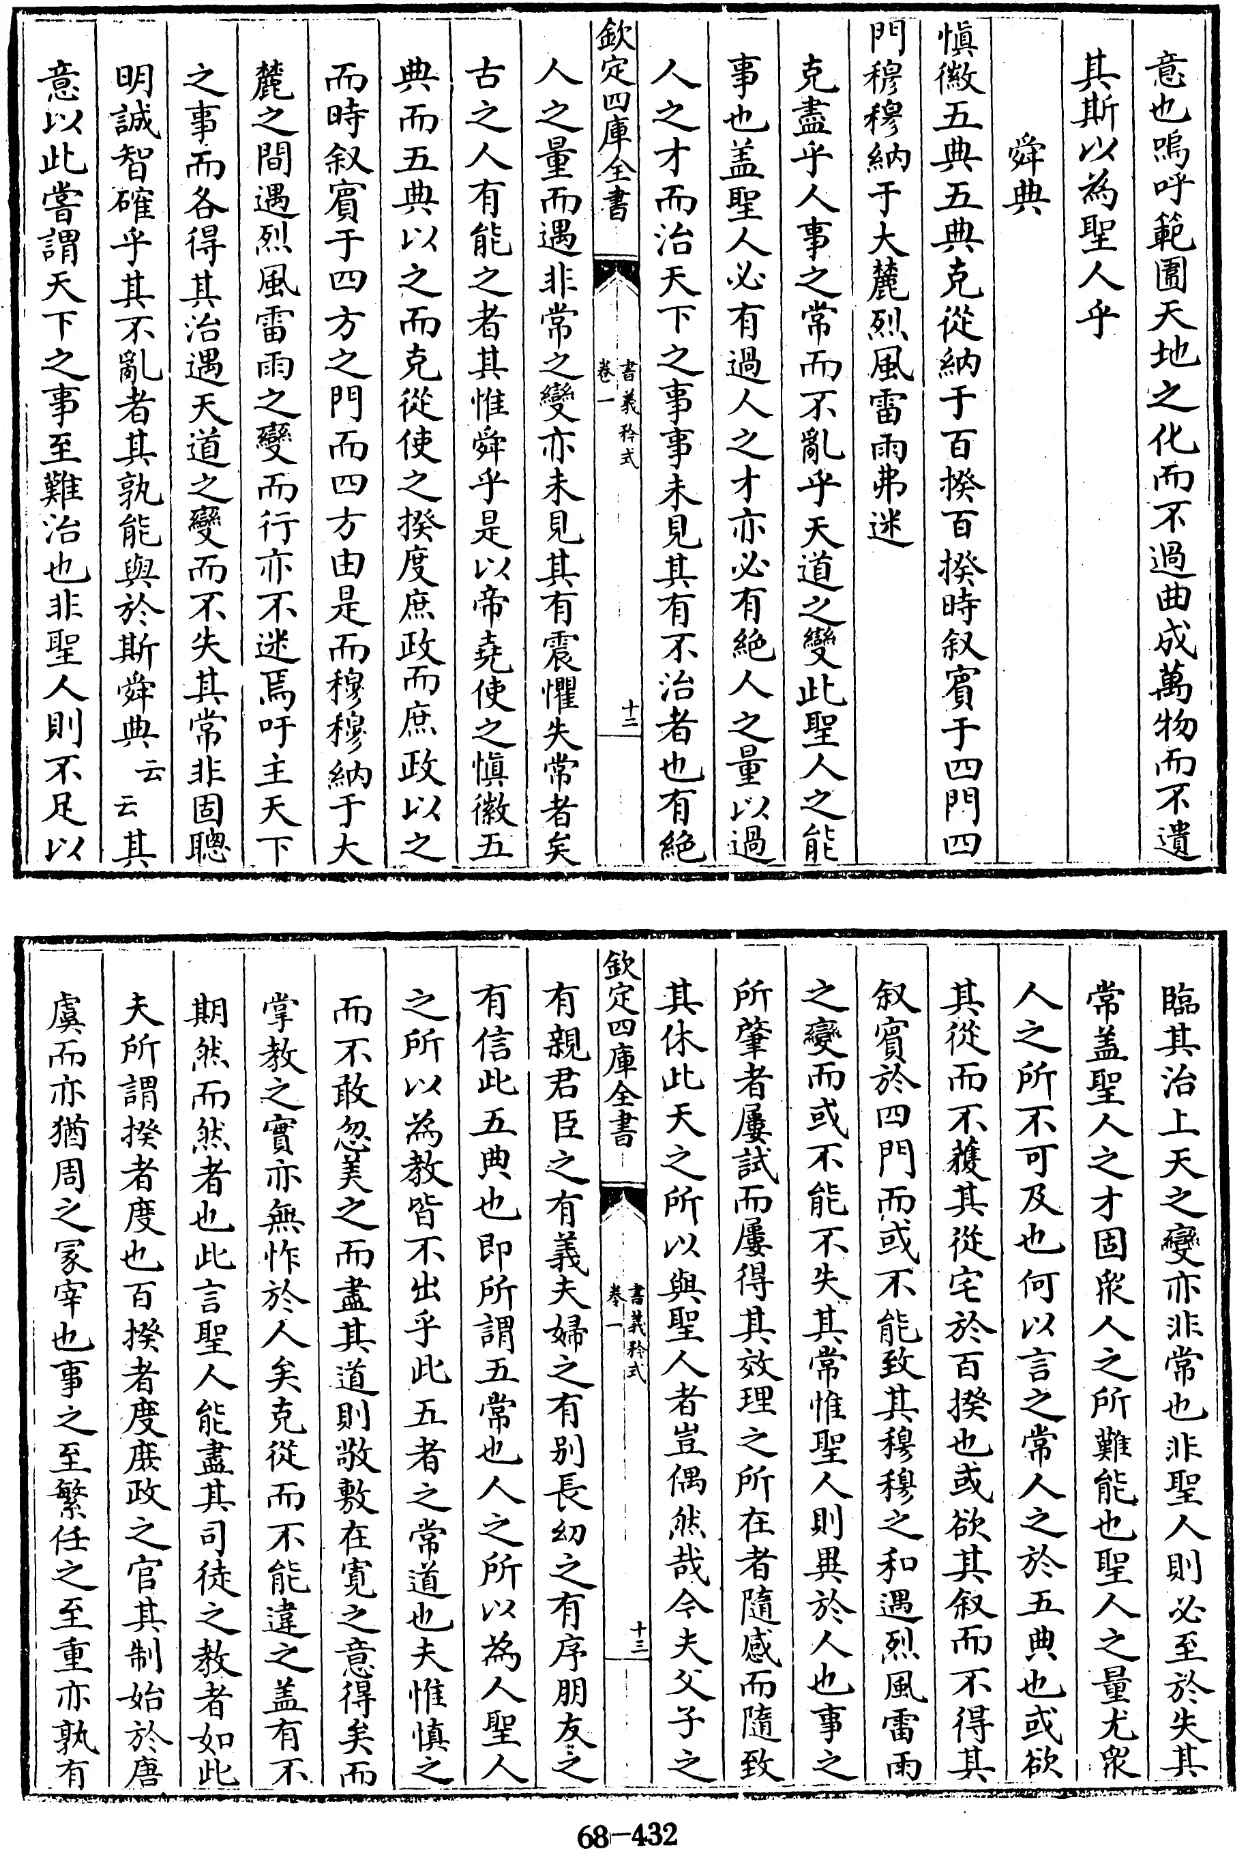 意也嗚呼範圍天地之化而不過曲成萬物而不遺
其斯以為聖人乎
舜典
慎徽五典五典克從納于百揆百揆時叙賓于四門四
門穆穆納于大麓烈風雷雨弗迷
克盡乎人事之常而不亂乎天道之變此聖人之能
事也盖聖人必有過人之才亦必有絶人之量以過
人之才而治天下之事事未見其有不治者也有絶
欽定四庫全書
書義矜式
卷一
十二
人之量而遇非常之變亦未見其有震懼失常者矣
古之人有能之者其惟舜乎是以帝堯使之慎徽五
典而五典以之而克從使之揆度庶政而庶政以之
而時叙賓于四方之門而四方由是而穆穆納于大
麓之間遇烈風雷雨之變而行亦不迷焉吁主天下
之事而各得其治遇天道之變而不失其常非固聰
明誠智確乎其不亂者其孰能與於斯舜典云云其
意以此嘗謂天下之事至難治也非聖人則不足以
臨其治上天之變亦非常也非聖人則必至於失其
常盖聖人之才固衆人之所難能也聖人之量尤衆
人之所不可及也何以言之常人之於五典也或欲
其從而不獲其從宅於百揆也或欲其叙而不得其
叙賓於四門而或不能致其穆穆之和遇烈風雷雨
之變而或不能不失其常惟聖人則異於人也事之
所肇者屢試而屢得其效理之所在者隨感而隨致
其休此天之所以與聖人者豈偶然哉今夫父子之
欽定四庫全書
書義矜式
卷一
十三
有親君臣之有義夫婦之有别長幼之有序朋友之
有信此五典也即所謂五常也人之所以為人聖人
之所以為教皆不出乎此五者之常道也夫惟慎之
而不敢忽美之而盡其道則敬敷在寛之意得矣而
掌教之實亦無怍於人矣克從而不能違之盖有不
期然而然者也此言聖人能盡其司徒之教者如此
夫所謂揆者度也百揆者度庶政之官其制始於唐
虞而亦猶周之冢宰也事之至繁任之至重亦孰有
68-432